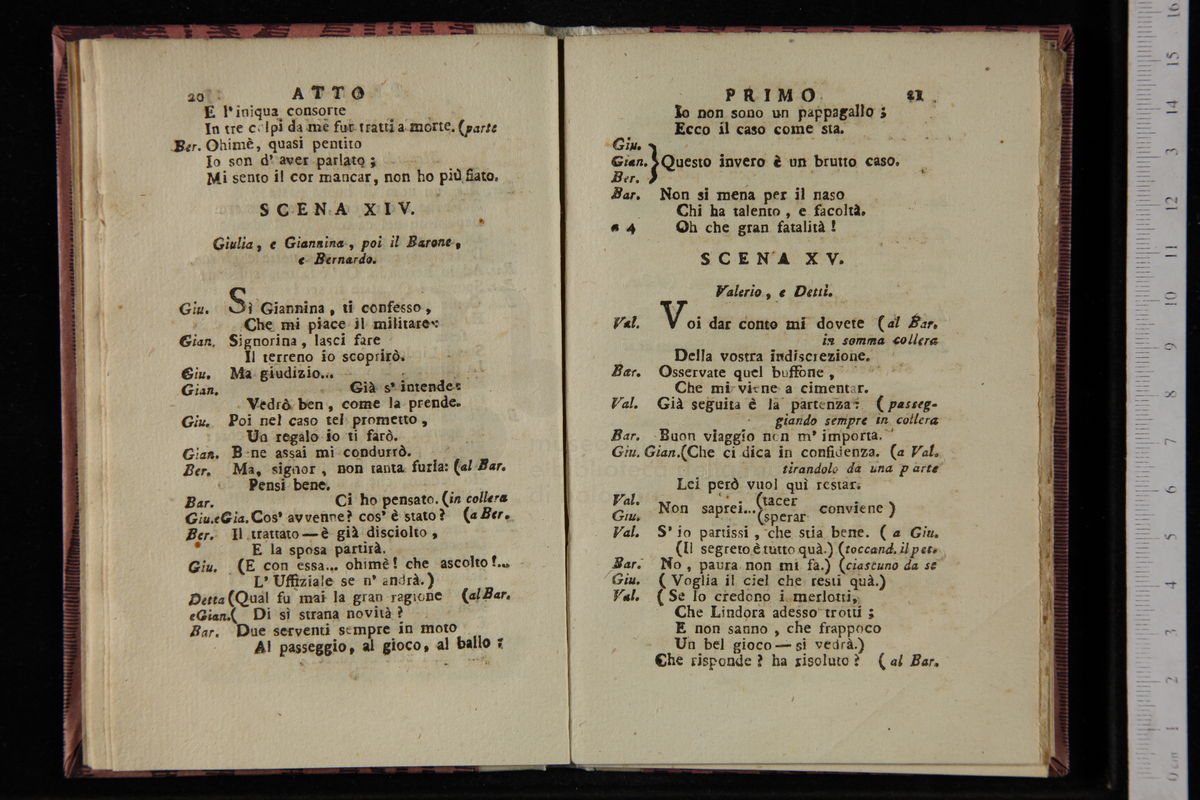 20 ATTO
E l'iniqua consorte
In tre colpi da me fur tratti a morte. (parte
Ber. Ohimè, quasi pentito
Io son d' aver parlato;
Mi sento il cor mancar, non ho più fiato.
SCENA XIV.
Giulia, e Giannina, poi il Barone,
e Bernardo.
Giu. Sì Giannina, ti confesso,
Che mi piace il militare:
Gian. Signorina, lasci fare
Il terreno io scoprirò.
Giu. Ma giudizio...
Gian. Già s' intende:
Vedrò ben, come la prende.
Giu. Poi nel caso tel prometto,
Un regalo io ti farò.
Gian. Bene assai mi condurrò.
Ber. Ma, signor, non tanta furia: (al Bar.
Pensi bene.
Bar. Ci ho pensato. (in collera
Giu.eGia. Cos' avvenne? cos' è stato? (a Ber.
Ber. Il trattato — è già disciolto,
E la sposa partirà.
Giu. (E con essa... ohimè! che ascolto!...
L' Uffiziale se n' andrà.)
Detta (Qual fu mai la gran ragione (al Bar.
eGian.( Di sì strana novità?
Bar. Due serventi sempre in moto
Al passeggio, al gioco, al ballo;
PRIMO 21
Io non sono un pappagallo;
Ecco il caso come sta.
Giu.
Gian. } Questo invero è un brutto caso.
Ber.
Bar. Non si mena per il naso
Chi ha talento, e facoltà.
a 4 Oh che gran fatalità!
SCENA XV.
Valerio, e Detti.
Val. Voi dar conto mi dovete (al Bar.
in somma collera
Della vostra indiscrezione.
Bar. Osservate quel buffone,
Che mi viene a cimentar.
Val. Già seguita è la partenza: (passeg-
giando sempre in collera
Bar. Buon viaggio non m' importa.
Giu. Gian. (Che ci dica in confidenza. (a Val.
tirandolo da una parte
Lei però vuol quì restar.
Val. (tacer
Giu. Non saprei... (sperar conviene)
Val. S' io partissi, che stia bene. (a Giu.
(Il segreto è tutto quà.) (toccand. il pet.
Bar. No, paura non mi fa.) (ciascuno da se
Giu. (Voglia il ciel che resti quà.)
Val. (Se lo credono i merlotti,
Che Lindora adesso trotti;
E non sanno, che frappoco
Un bel gioco — si vedrà.)
Che risponde? ha risoluto? (al Bar.
0 cm 1 2 3 4 5 6 7 8 9 10 11 12 13 14 15 16